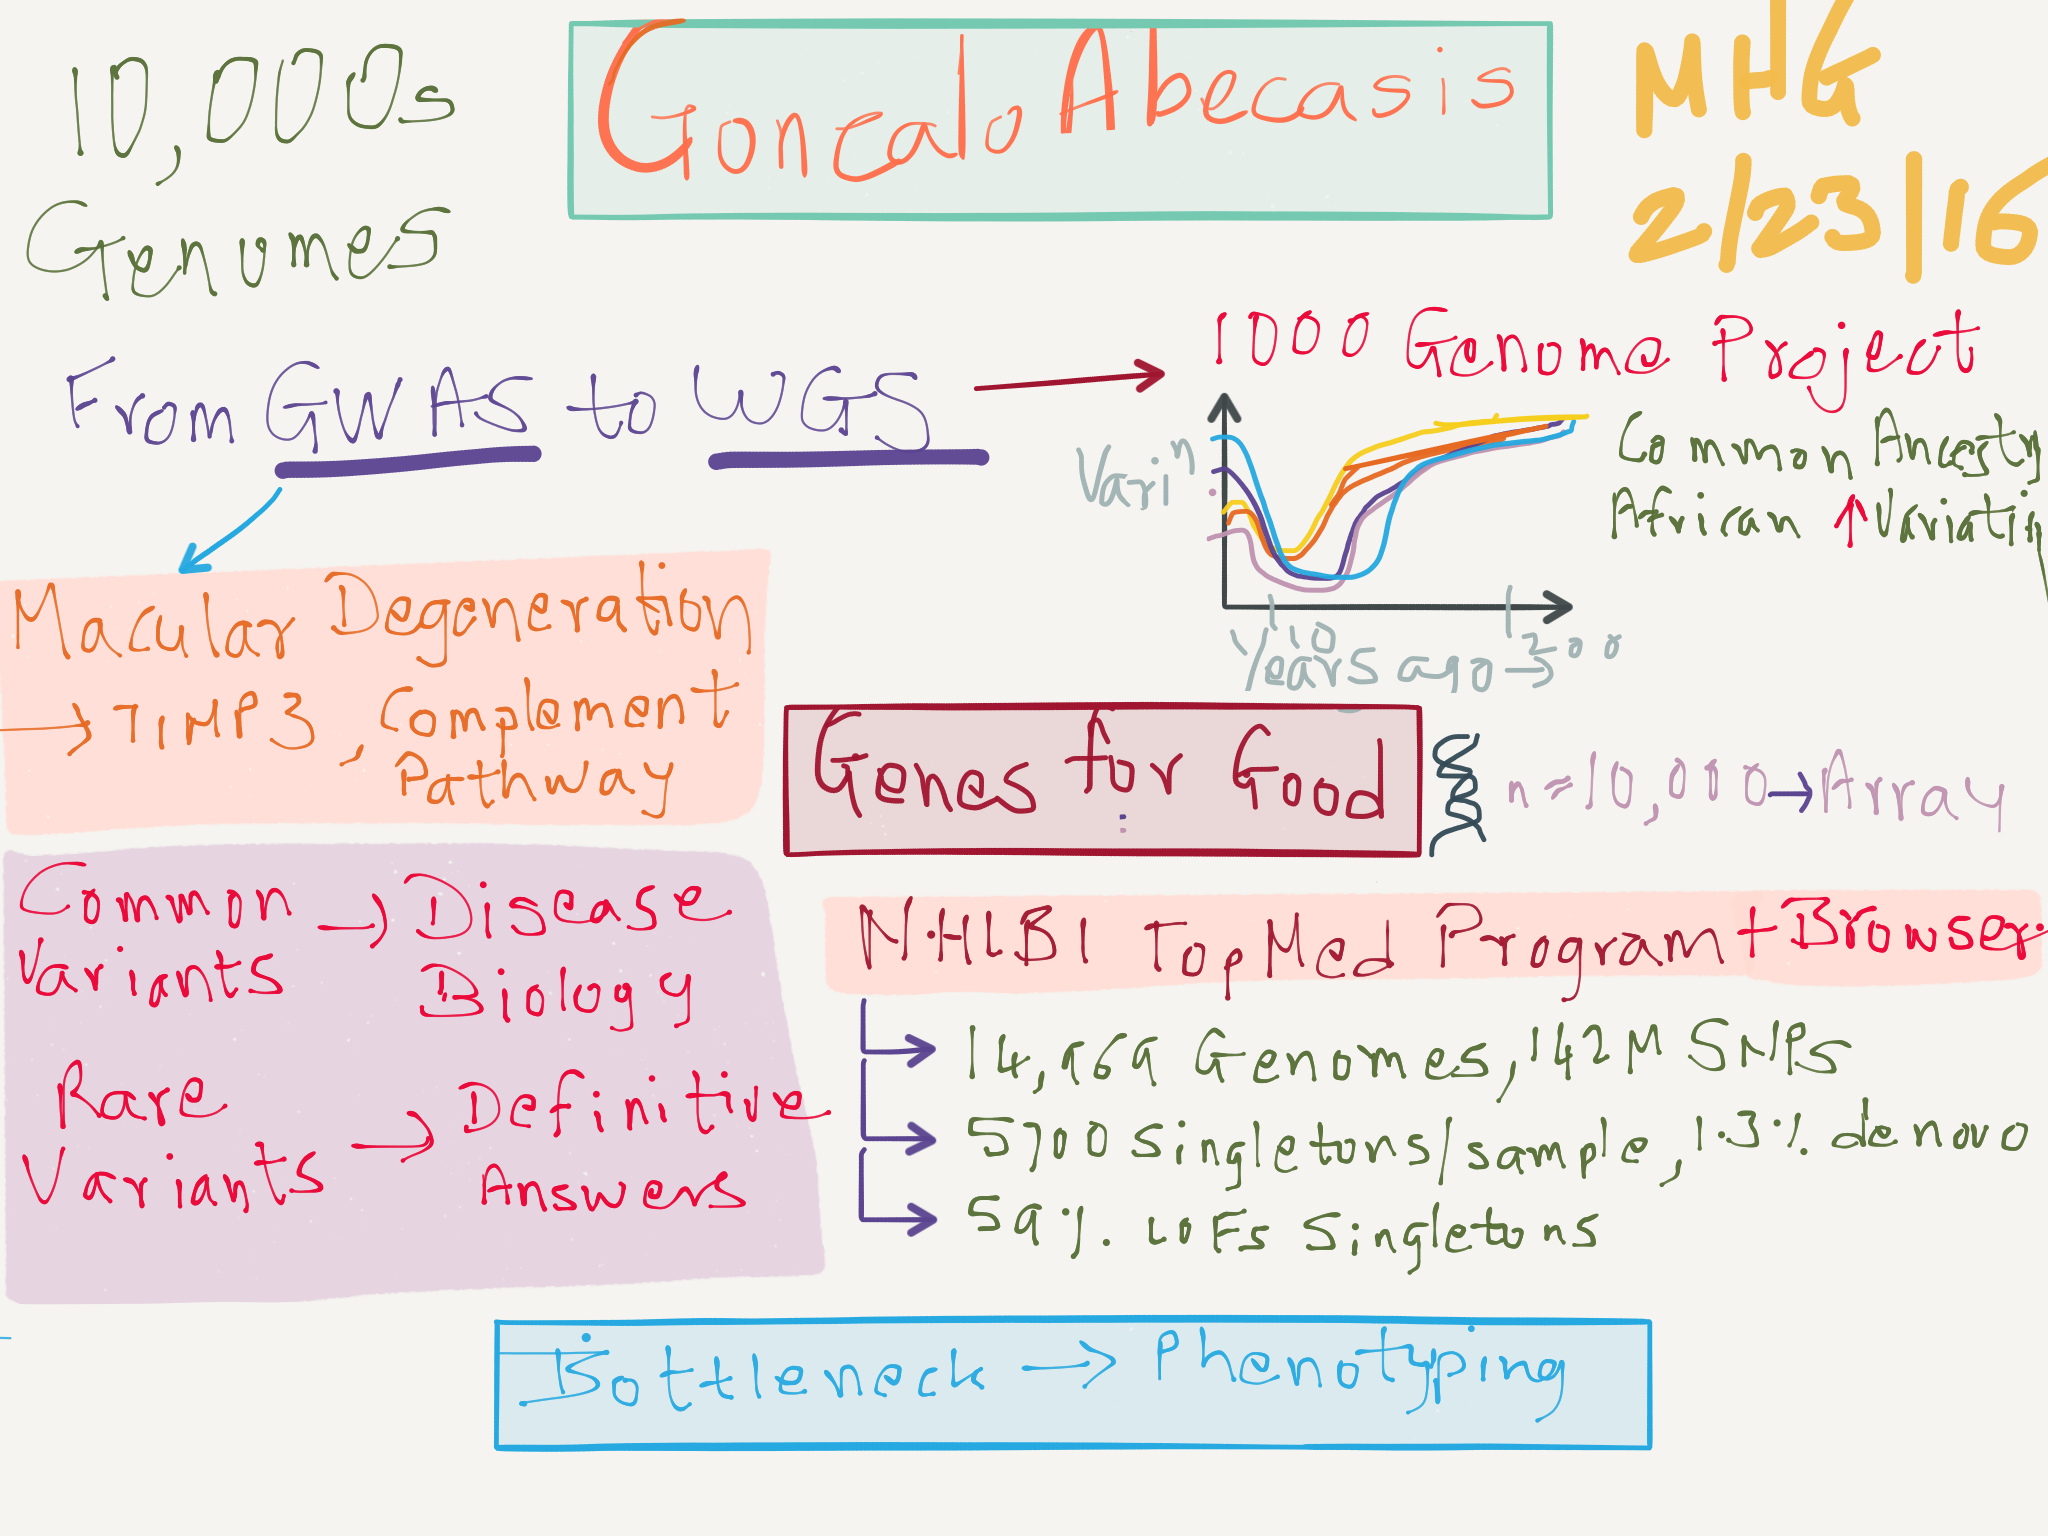 10,000s
Genomes
Goncalo Abecasis
MHG
2/23/16
From GWAS to WGS
1000 Genome Project
Variⁿ
Common Ancestry
African ↑ Variatin
10
Years ago →
Macular Degeneration
→ TIMP3, Complement
Pathway
Genes for Good
n=10,000 → Array
Common → Disease
Variants
Biology
Rare
Variants → Definitive
Answers
NHLBI TopMed Program + Browser
14,969 Genomes, 142M SNPs
5700 Singletons/sample, 1.3% de novo
59% LOFs Singletons
Bottleneck → Phenotyping